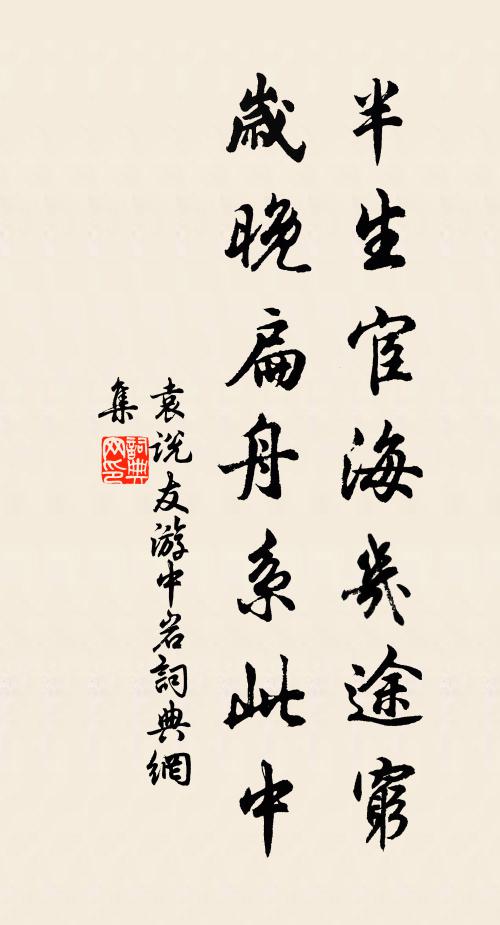 半生宦海幾途窮
歲晚扁舟系此中
袁说友游中岩詞典網
集
詞典
网印